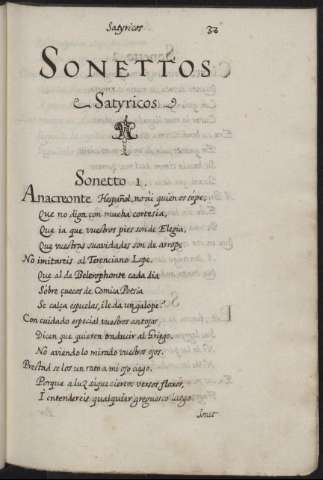 Satyricos
SONETTOS
Satyricos
Sonetto 1.
Anacreonte Hespañol, no ai quien os tope,
Que no diga con mucha cortesia,
Que ia que vuestros pies son de Elegia,
Que vuestras suavidades son de arrope.
No imitareis al Terenciano Lope,
Que al de Belerophonte cada dia
Sobre çuecos de Comica Poësia
Se calça espuelas, i le da un galope?
Con cuidado especial vuestros antojos
Dicen que quieren traducir al Griego,
No aviendo lo mirado vuestros ojos.
Prestad se los un rato a mi ojo ciego,
Porque a luz saque ciertos versos floxos,
I entendereis qualquier greguesco luego.